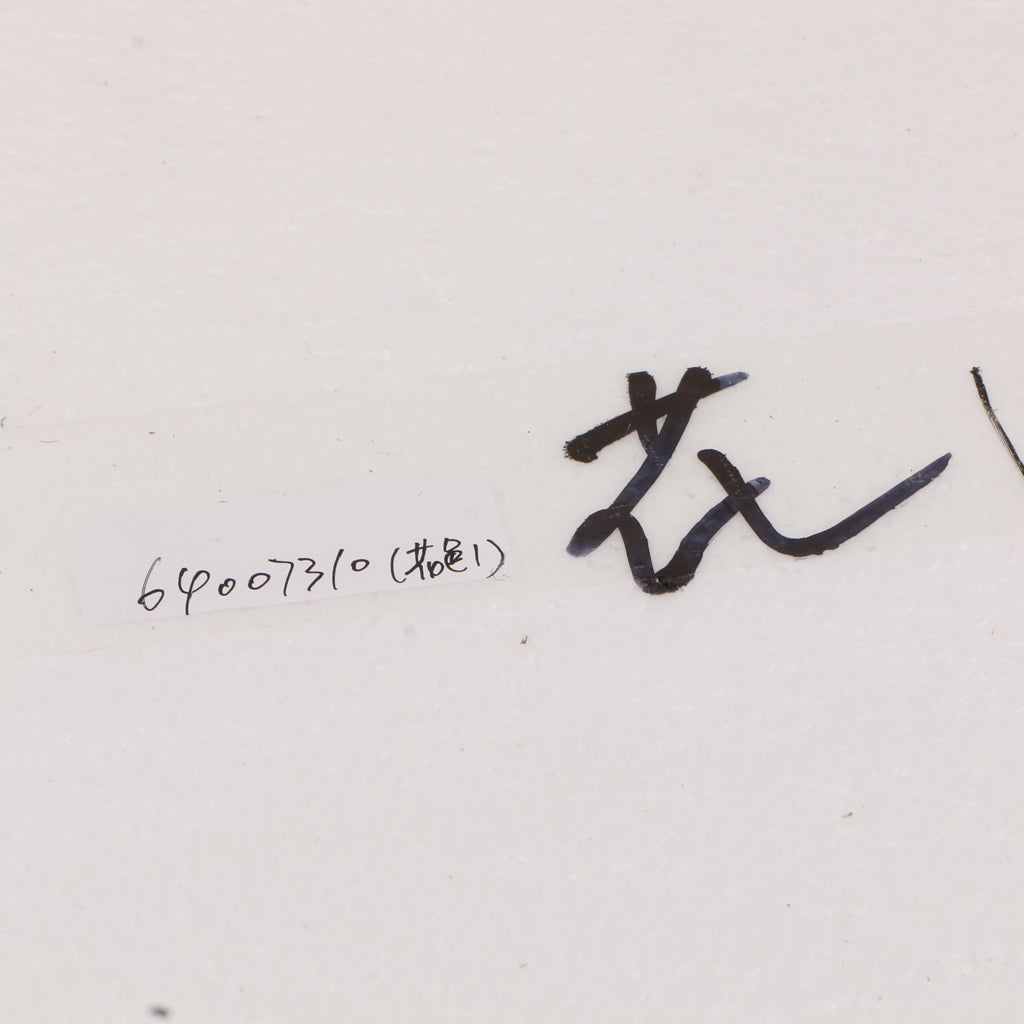 64007310(花色1)
花